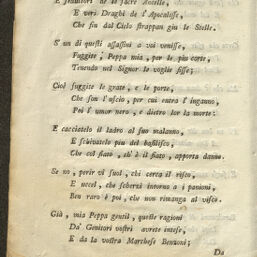 E seduttori de le sacre Ancelle,
E veri Draghi de l'Apocalisse,
Che fin dal Cielo strappan giù le Stelle.
S'un di questi assassini a voi venisse,
Fuggite, Peppa mia, per le più corte,
Tenendo nel Signor le voglie fisse;
Cioè fuggite le grate, e le porte,
Che son l'uscio, per cui entra l'inganno,
Poi l'umor nero, e dietro lor la morte:
E cacciatelo il ladro al suo malanno,
E schivatelo piu del basilisco,
Che col fiato, th'è il fiato, apporta danno.
Se no, perir vi suol, chi cerca il risco,
E uccel, che scherza intorno a i panioni,
Ben raro è poi, che non rimanga al visco.
Già, mia Peppa gentil, queste ragioni
Da' Genitori vostri avrete intese,
E da la vostra Marchese Benzoni;
Da